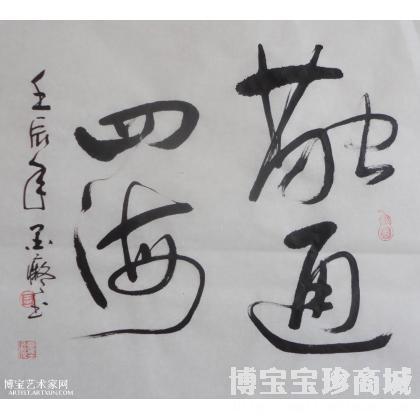 融通
四海
壬辰年墨痴书
博宝艺术家网
ARTIST.ARTXUN.COM
博宝宝珍商城